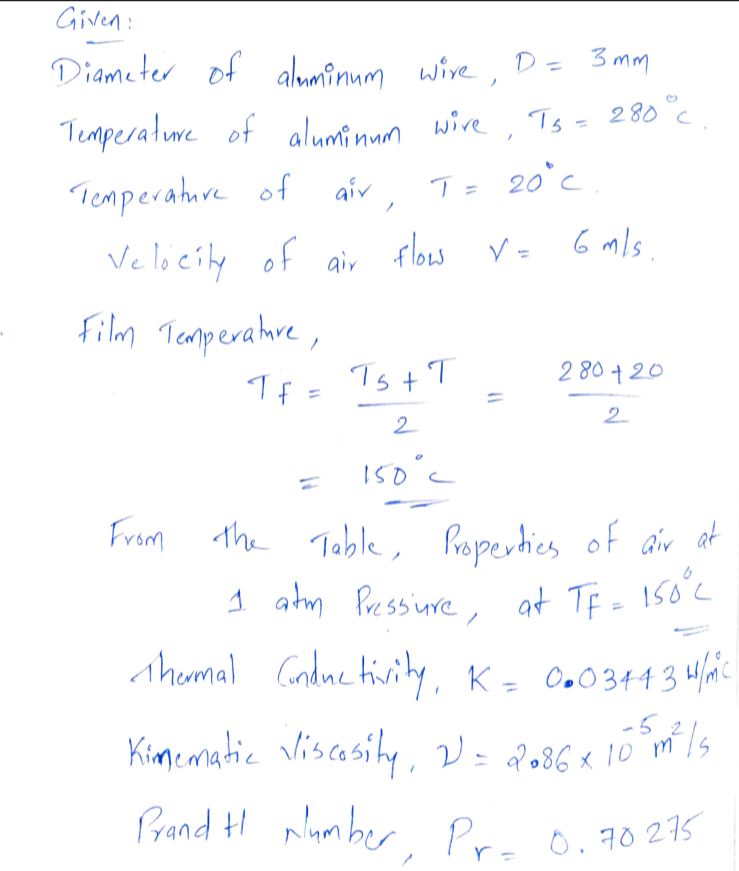 Given:
Diameter of aluminum wire, D = 3 mm
Temperature of aluminum wire, Ts = 280°c.
Temperature of air, T = 20°c.
Velocity of air flow V = 6 m/s.
Film Temperature,
Tf = Ts + T / 2 = 280 + 20 / 2
= 150°c
From the Table, Properties of air at
1 atm Pressure, at TF = 150°c
Thermal Conductivity, K = 0.03443 W/m°c
Kinematic Viscosity, ν = 2.086 x 10⁻⁵ m²/s
Prandtl Number, Pr = 0.70275